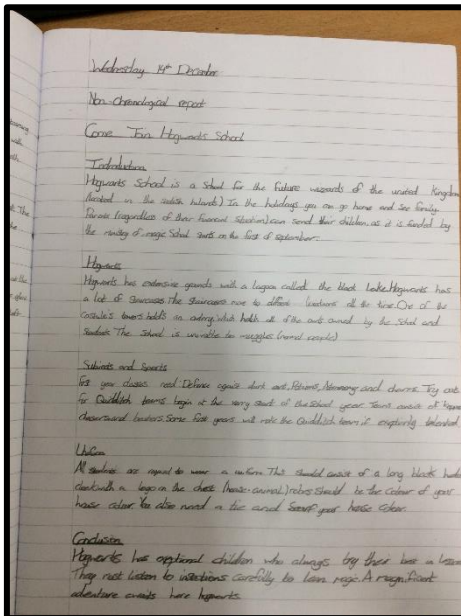 Wednesday 14th December
Non-chronological report
Come Join Hogwarts School
Introduction
Hogwarts School is a School for the future wizzards of the united Kingdom
(located in the scotish hilands) In the holidays you can go home and see family.
Parents (regardless of their financial situation) can send their children, as it is funded by
the ministry of magic School starts on the first of september.
Hogwarts
Hogwarts has extensive grounds with a lagoon called the black Lake. Hogwarts has
a lot of staircases. The staircases move to different locations all the time. One of the
towers holds an which holds all of the owls owned by the School and
Students. The School is to muggles (normal people)
Subjects and Sports
First year classes need Defence dark arts, Potions, and charms. Try outs
for Quidditch teams begin at the very start of the School year. Teams consist of
chasers and beaters. Some first years will make the Quidditch team if talented
Uniform
All students are to wear a uniform. This should consist of a long black
cloak with a logo on the chest (house-animal) robes should be the colour of your
house colour. You also need a tie and Scarf your house colour.
Conclusion
Hogwarts has children who always try their best in
They listen to carefully to learn magic. A magnificent
adventure awaits here hogwarts.